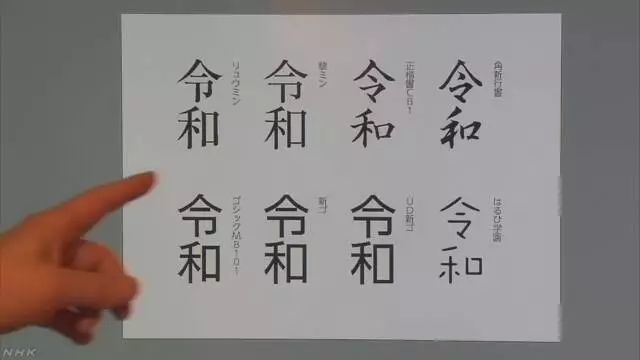 角新行書
令和
正楷書CB1
令和
黎ミン
令和
リュウミン
令和
はるひ学園
令和
UD新ゴ
令和
新ゴ
令和
ゴシックMB101
令和
NHK